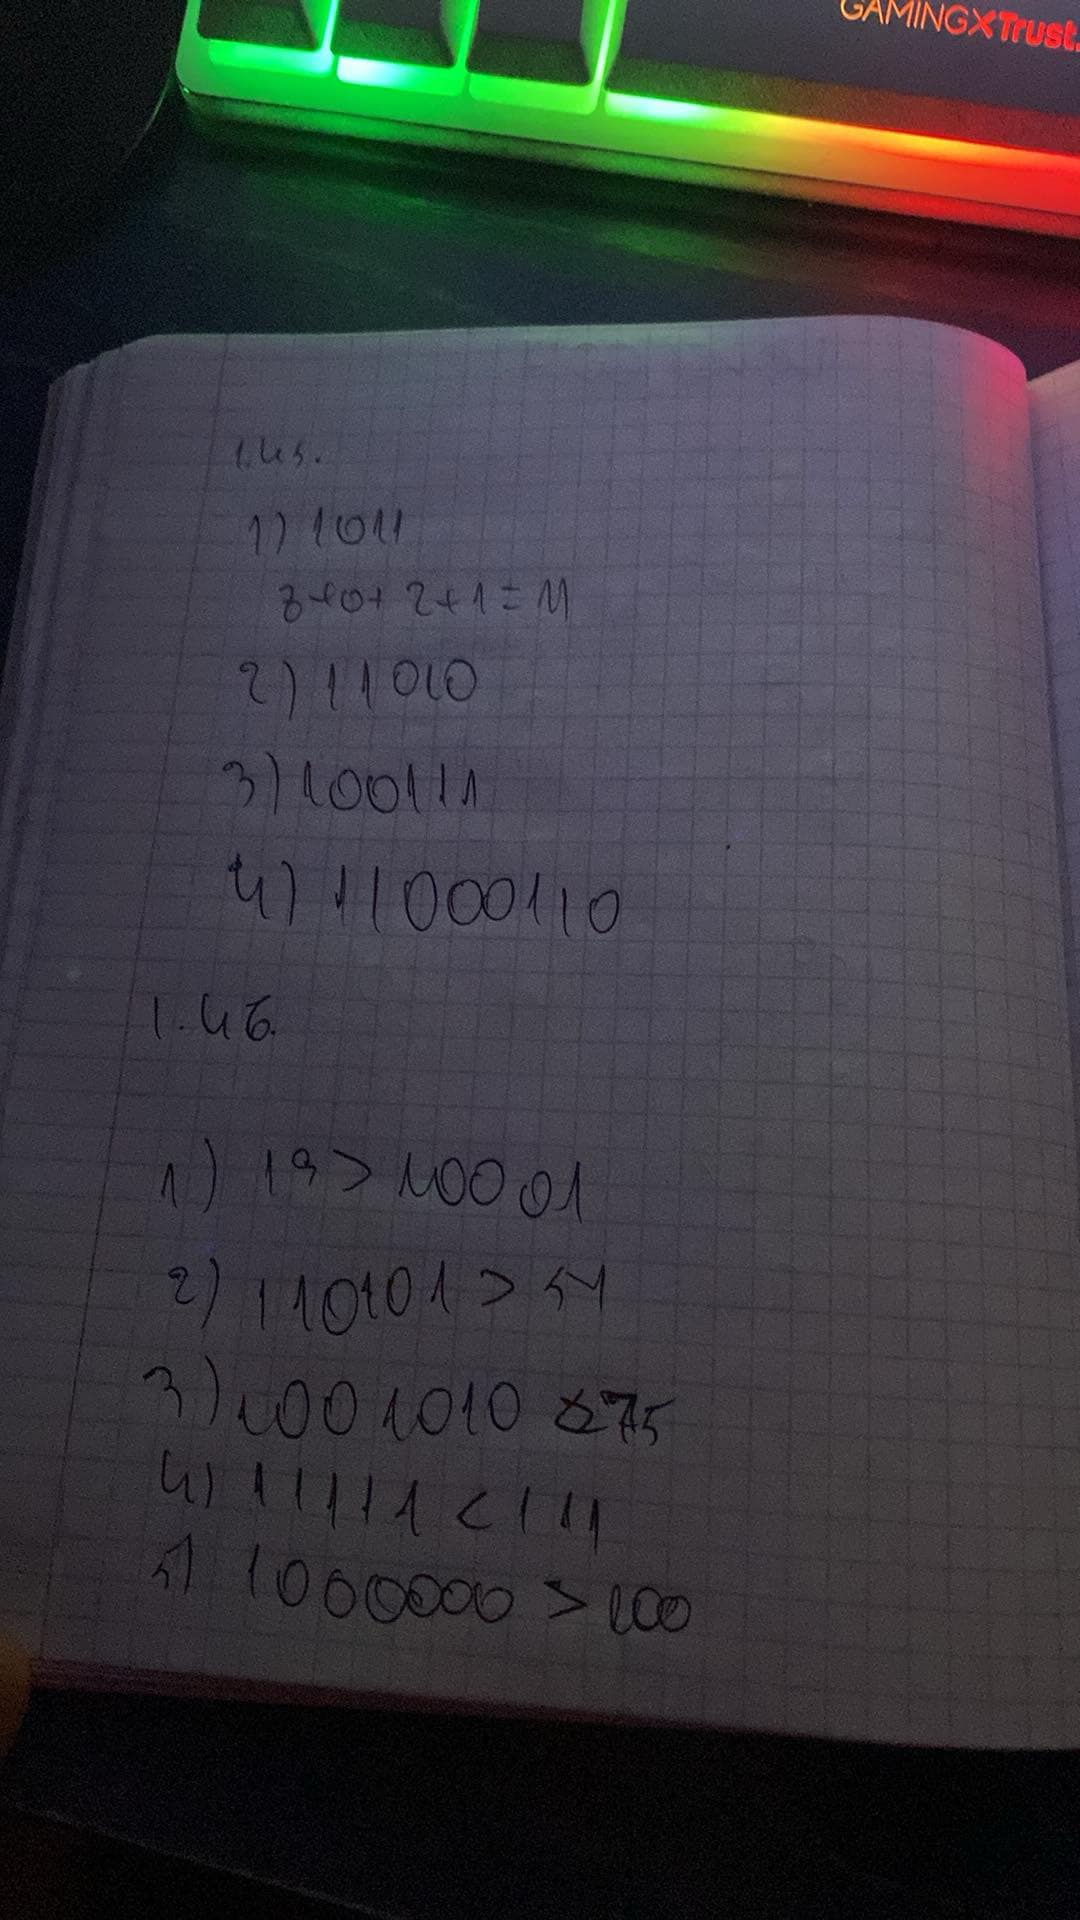 GAMINGXTrust.
1.45.
1) 1011
8+0+2+1=11
2) 11010
3) 100111
4) 11000110
1.46.
1) 19 > 10001
2) 110101 > 54
3) 1001010 < 75
4) 11111 < 111
5) 1000000 > 100